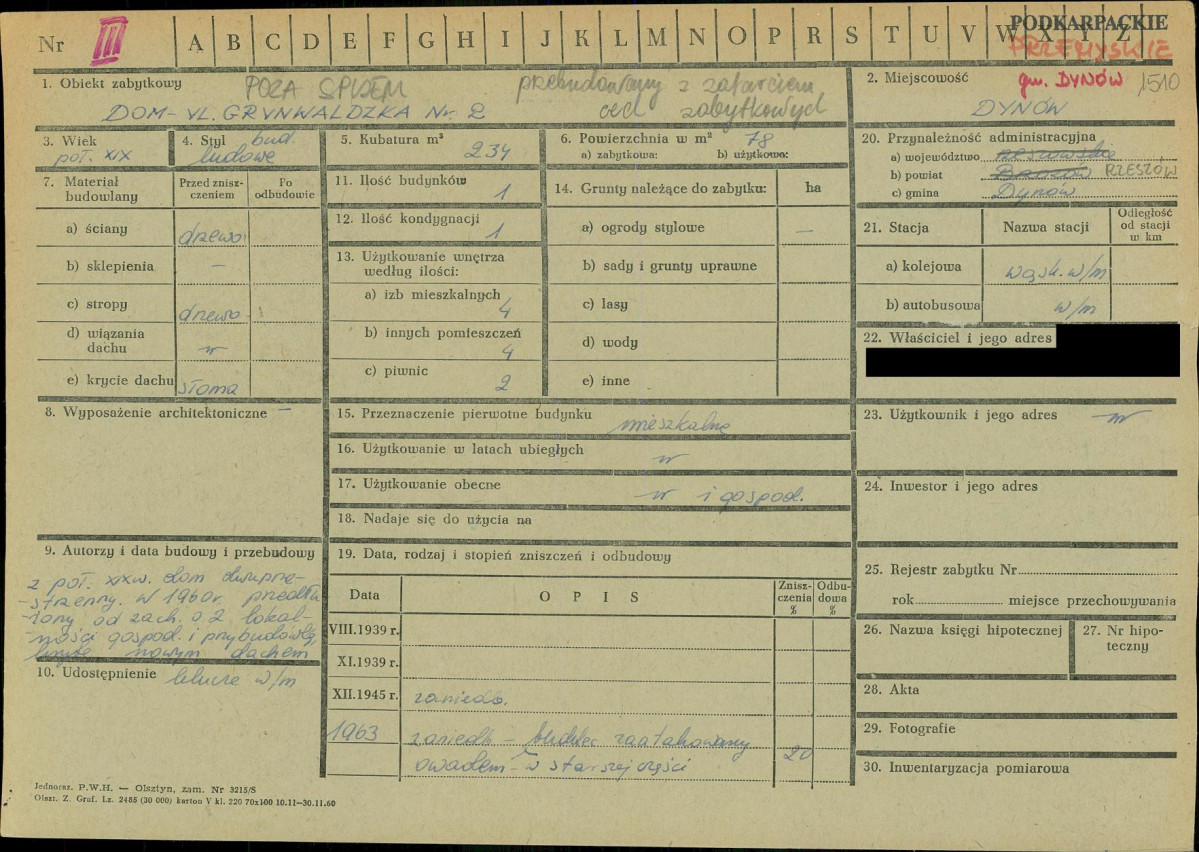 Nr III A B C D E F G H I J K L M N O P R S T U V W X Y Z
PODKARPACKIE
PRZEMYSKIE
1. Obiekt zabytkowy
POZA SPISEM
przebudowany z zatarciem
cech zabytkowych
DOM - UL. GRUNWALDZKA Nr. 2
2. Miejscowość
gm. DYNÓW 1510
DYNÓW
3. Wiek
poł. XIX
4. Styl bud.
ludowe
5. Kubatura m³
234
6. Powierzchnia w m² 78
a) zabytkowa: b) użytkowa:
7. Materiał budowlany
Przed zniszczeniem
Po odbudowie
a) ściany drewo
b) sklepienia –
c) stropy drewo
d) wiązania dachu "
e) krycie dachu słoma
8. Wyposażenie architektoniczne –
9. Autorzy i data budowy i przebudowy
z poł. XIXw. dom
strzenny. w 1960r. przedłu-
-żony od zach. o 2 lokal-
-ności gospod. i przybudówkę
nowym dachem
10. Udostępnienie w/m
11. Ilość budynków
1
12. Ilość kondygnacji
1
13. Użytkowanie wnętrza
według ilości:
a) izb mieszkalnych
4
b) innych pomieszczeń
4
c) piwnic
2
14. Grunty należące do zabytku: ha
a) ogrody stylowe –
b) sady i grunty uprawne
c) lasy
d) wody
e) inne
15. Przeznaczenie pierwotne budynku
mieszkalne
16. Użytkowanie w latach ubiegłych
"
17. Użytkowanie obecne
" i gospod.
18. Nadaje się do użycia na
19. Data, rodzaj i stopień zniszczeń i odbudowy
Data O P I S Zniszczenia % Odbudowa %
VIII.1939 r.
XI.1939 r.
XII.1945 r. zaniedb.
1963 zaniedb – zaatakowany
owadem – w starszej części 20
20. Przynależność administracyjna
a) województwo rzeszowskie
b) powiat Brzozów RZESZÓW
c) gmina Dynów
21. Stacja Nazwa stacji Odległość
od stacji
w km
a) kolejowa wąsk. w/m
b) autobusowa w/m
22. Właściciel i jego adres
23. Użytkownik i jego adres "
24. Inwestor i jego adres
25. Rejestr zabytku Nr
rok miejsce przechowywania
26. Nazwa księgi hipotecznej
27. Nr hipoteczny
28. Akta
29. Fotografie
30. Inwentaryzacja pomiarowa
Jednoraz. P.W.H. — Olsztyn, zam. Nr 3215/S
Olszt. Z. Graf. Lz. 2485 (30 000) karton V kl. 220 70x100 10.11—30.11.60